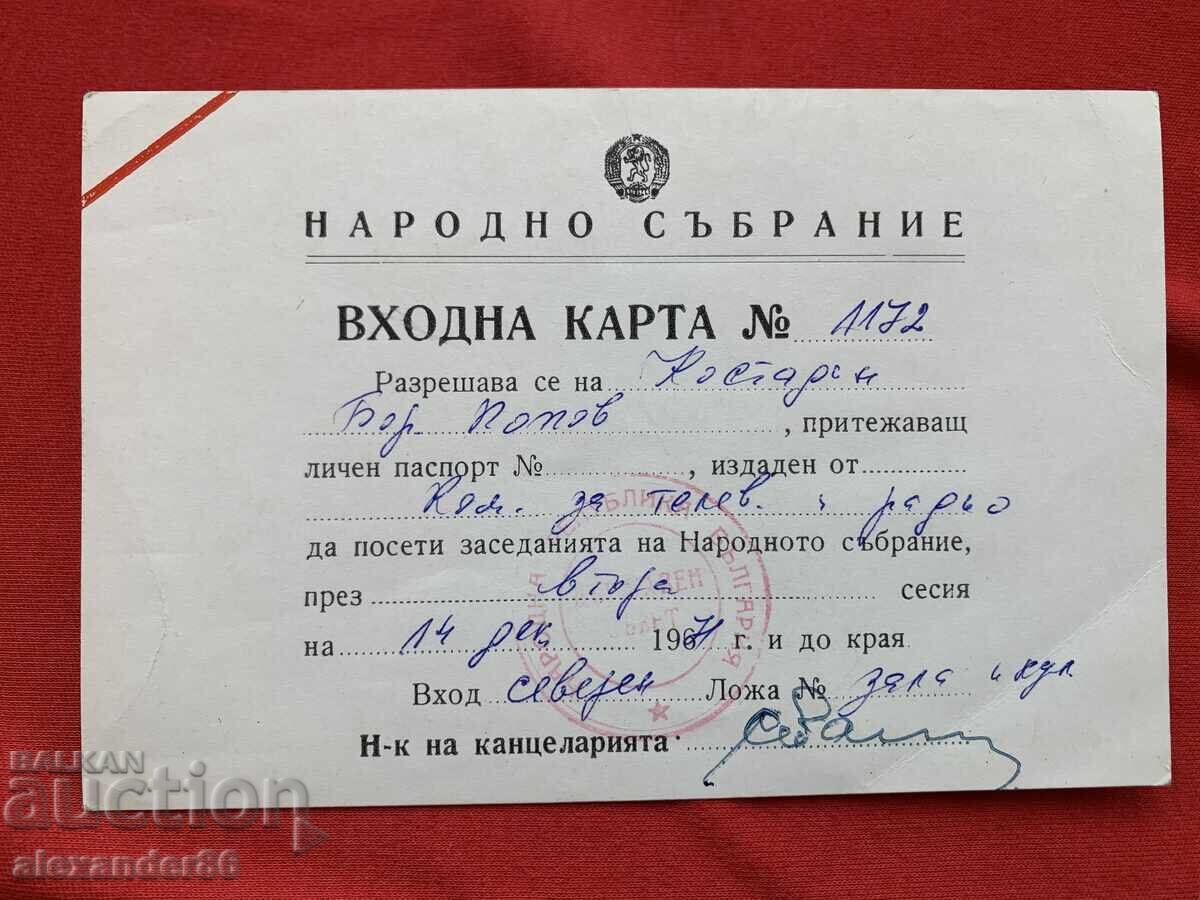 НАРОДНО СЪБРАНИЕ
ВХОДНА КАРТА № 1172
Разрешава се на Костадин
Бор. Попов, притежаващ
личен паспорт №, издаден от
Ком. за телев. и радио
да посети заседанията на Народното събрание,
през втора сесия
на 14 дек 1971 г. и до края
Вход северен Ложа № зала и кул.
Н-к на канцеларията
НАРОДНА РЕПУБЛИКА БЪЛГАРИЯ
BALKAN
auction
alexander80